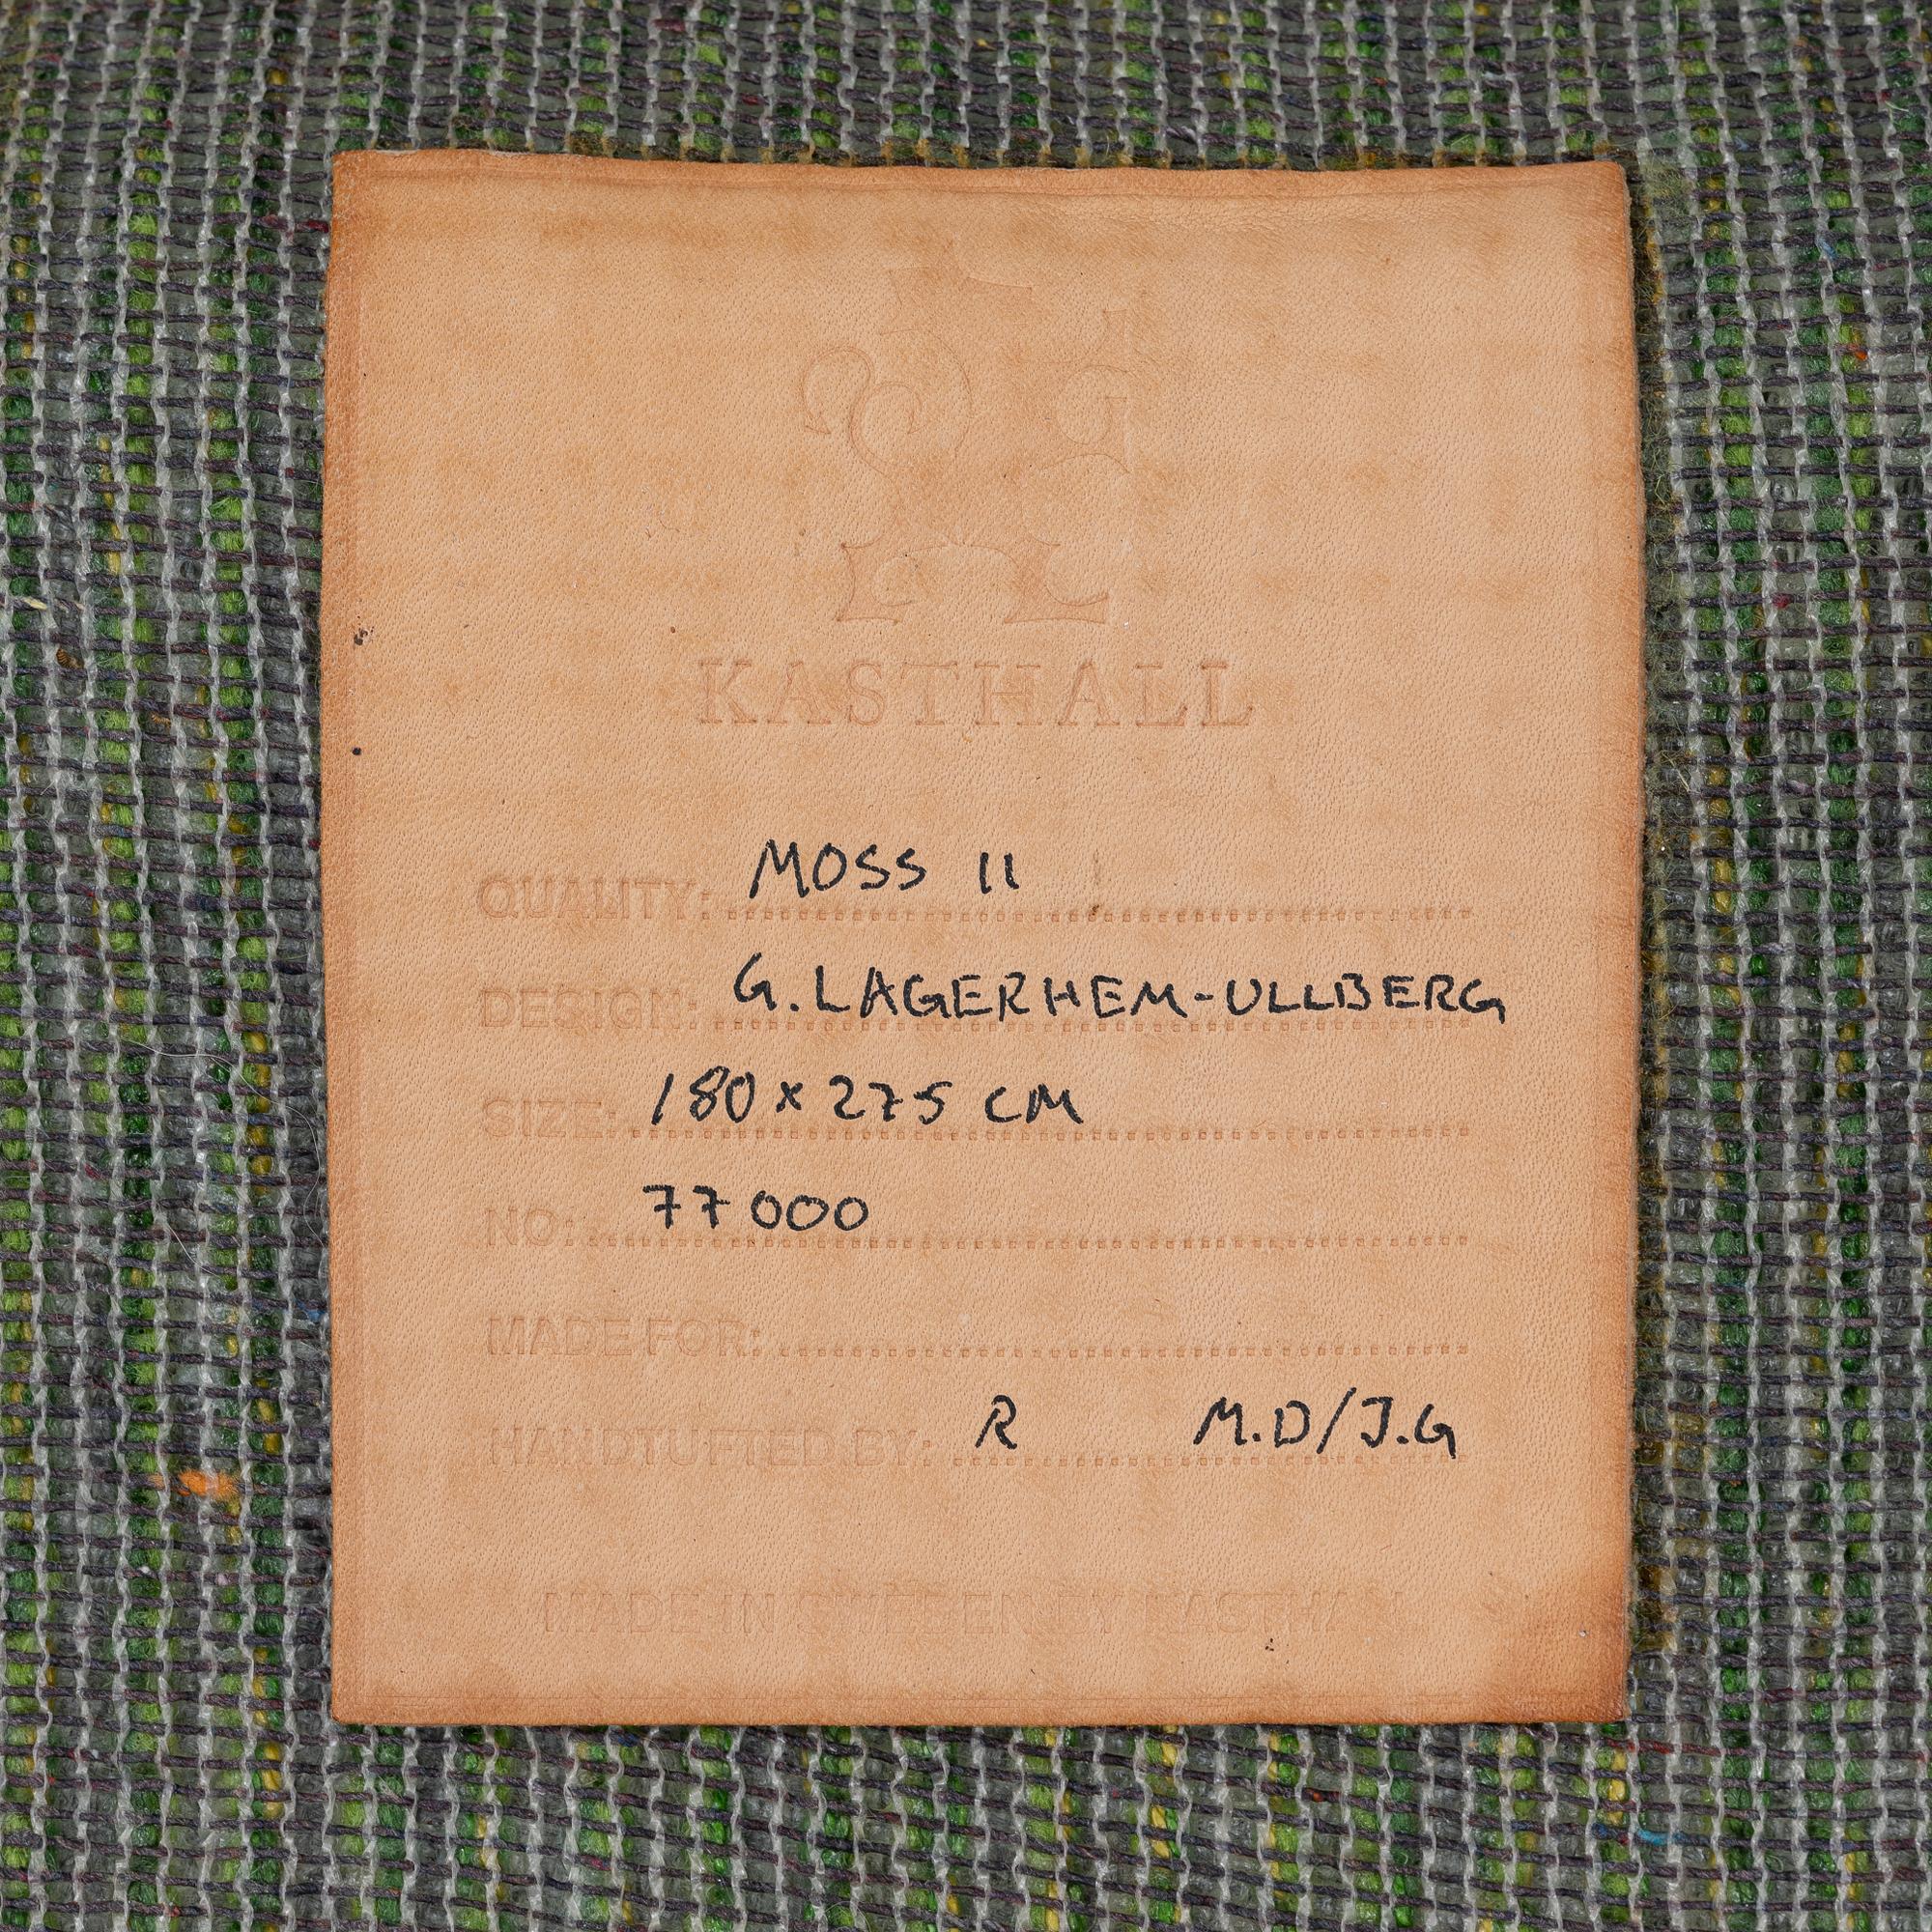 KASTHALL
QUALITY: MOSS II
DESIGN: G. LAGERHEM-ULLBERG
SIZE: 180 x 275 CM
NO: 77 000
MADE FOR:
HANDTUFTED BY: R M.D/J.G
MADE IN SWEDEN BY KASTHALL